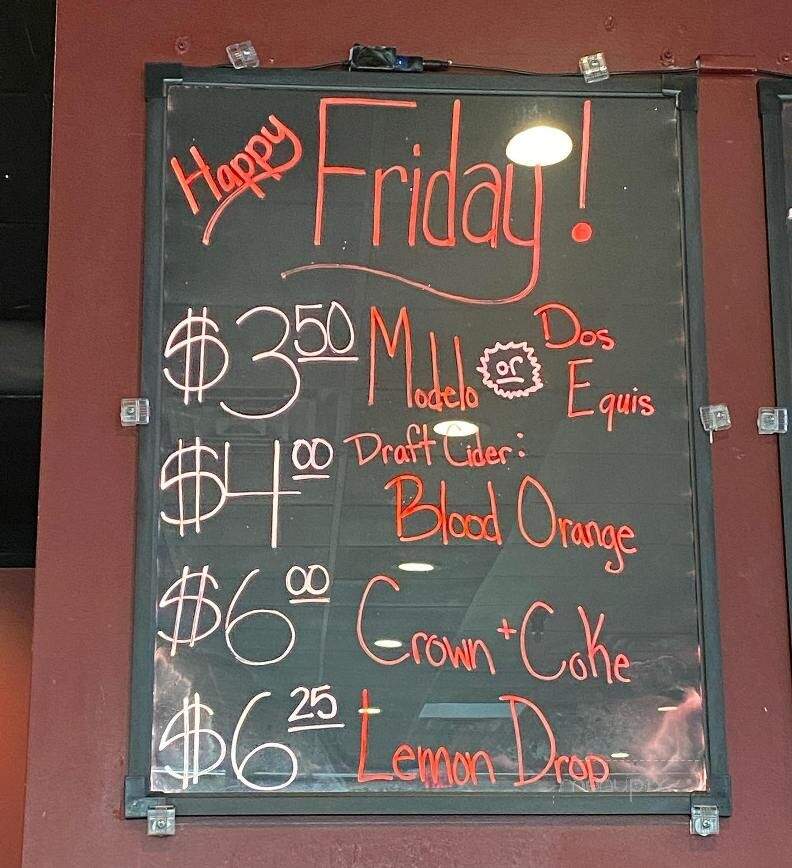 Happy Friday!
$3.50 Modelo or Dos Equis
$4.00 Draft Cider:
Blood Orange
$6.00 Crown + Coke
$6.25 Lemon Drop